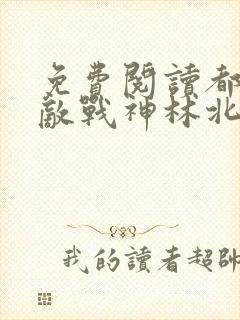 免費閱讀都
敵戰神林北
我的讀者超帥